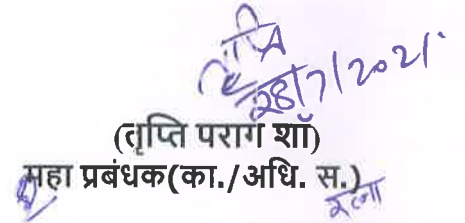 28/7/2021
(तृप्ति पराग शॉ)
महा प्रबंधक(का./अधि. स.)